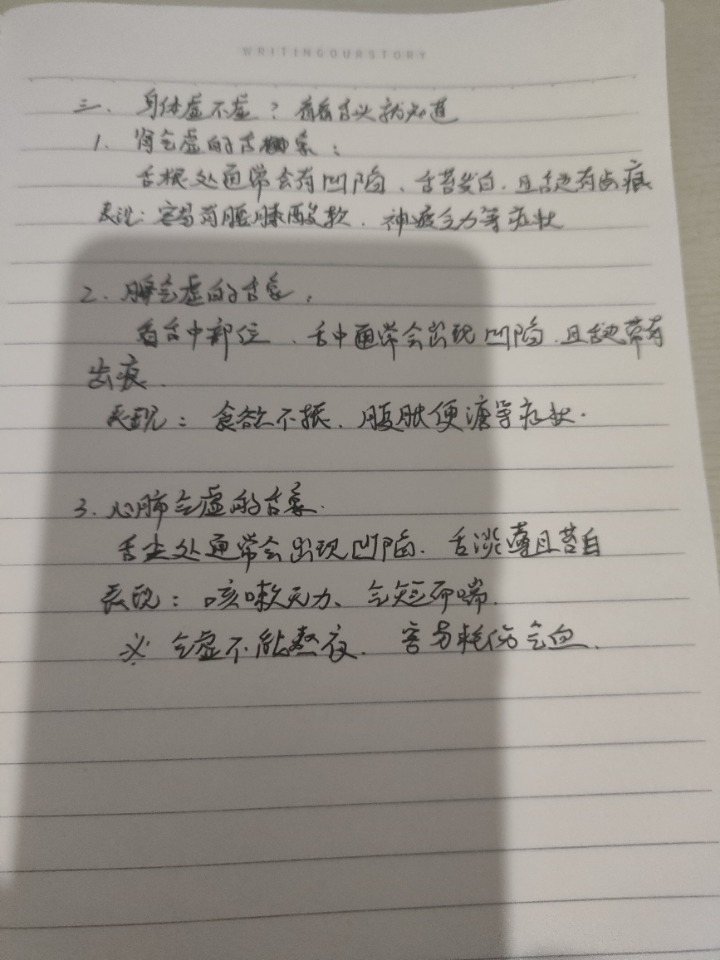 WRITINGOURSTORY
三、身体虚不虚？看看舌头就知道
1、肾气虚的舌象：
舌根处通常会有凹陷、舌苔发白、且舌边有齿痕
表现：容易有腰膝酸软、神疲乏力等症状
2、脾气虚的舌象，
看舌中部位、舌中通常会出现凹陷、且舌边带有
齿痕.
表现：食欲不振、腹胀便溏等症状.
3、心肺气虚的舌象.
舌尖处通常会出现凹陷、舌淡薄且苔白
表现：咳嗽无力、气短而喘.
※ 气虚不能熬夜、容易耗伤气血.